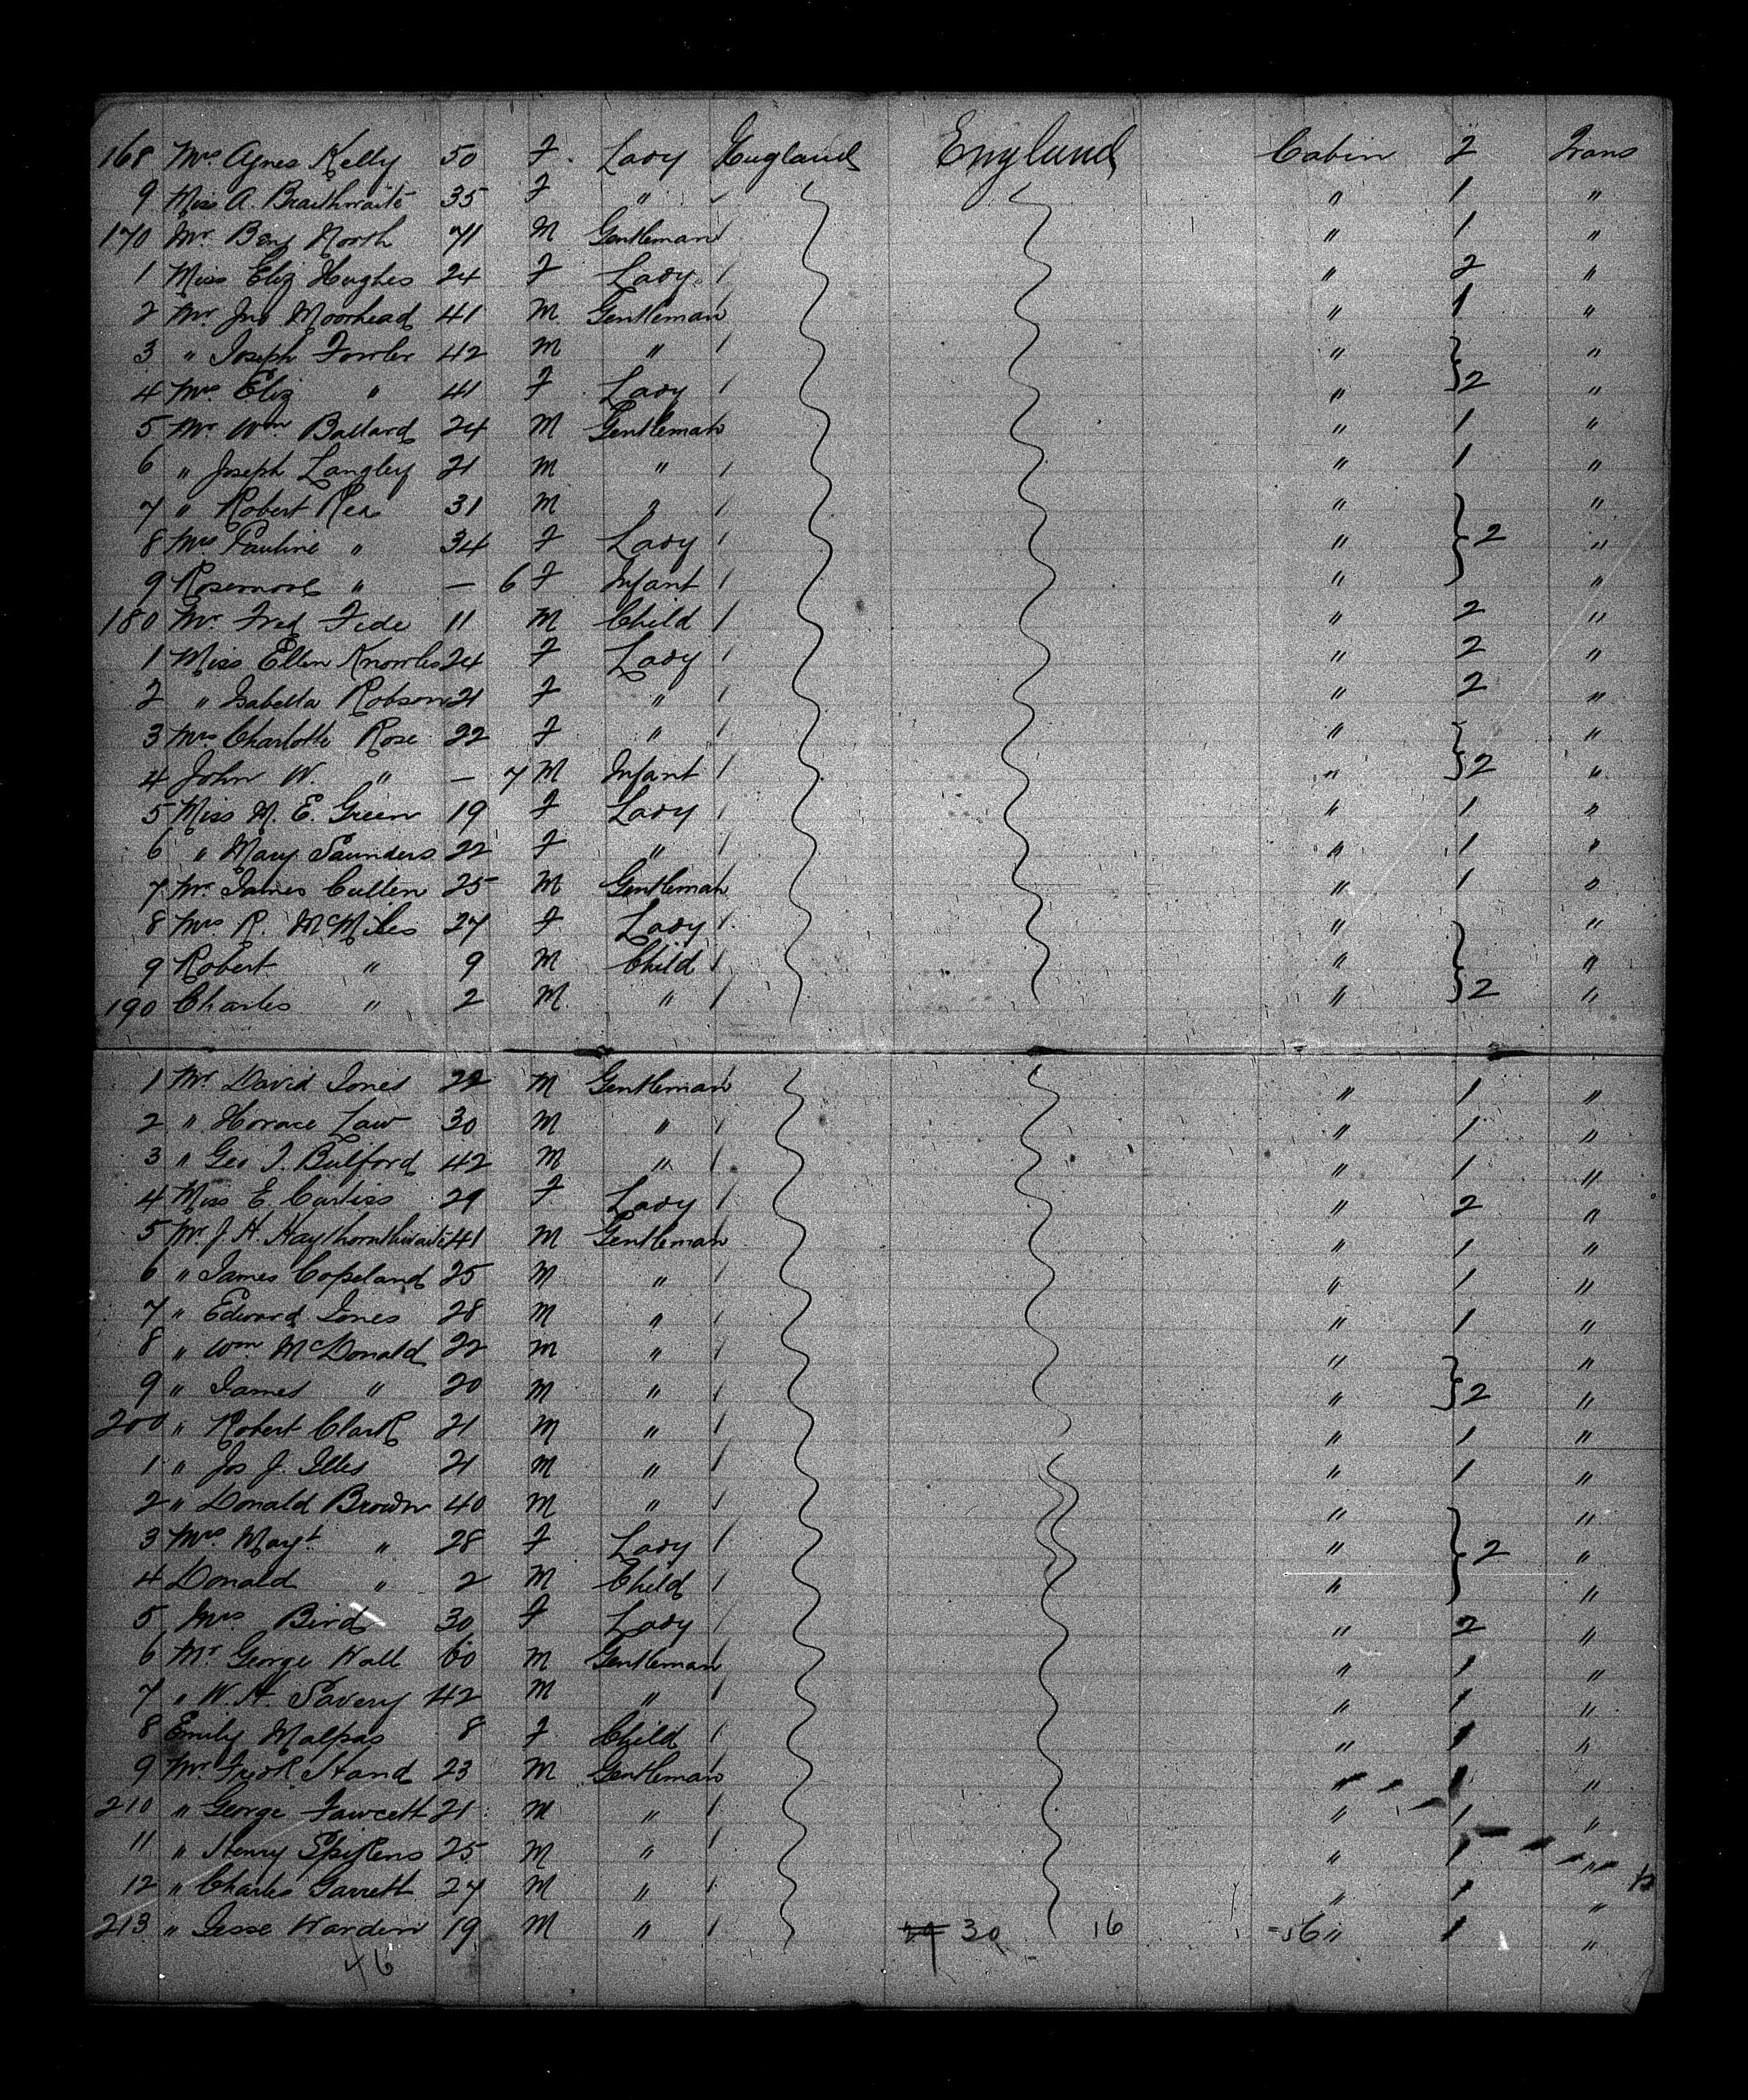 168 Mrs Agnes Kelly 50 F. Lady England England Cabin 2 Trans
9 Miss A. Braithwaite 35 F " " 1 "
170 Mr. Benj North 71 M Gentleman " 1 "
1 Miss Eliz Hughes 24 F Lady " 2 "
2 Mr Jno Moorhead 41 M. Gentleman " 1 "
3 " Joseph Fowler 42 M " " "
4 Mrs Eliz " 41 F Lady " 2 "
5 Mr Wm. Ballard 24 M Gentleman " 1 "
6 " Joseph Langley 21 M " " 1 "
7 " Robert Rea 31 M " " "
8 Mrs Pauline " 34 F Lady " 2 "
9 " — 6 F Infant " "
180 Mr. Fred Fide 11 M Child " 2 "
1 Miss Ellen Knowles 24 F Lady " 2 "
2 " Isabella Robson 21 F " " 2 "
3 Mrs Charlotte Rose 22 F " " "
4 John W. " — 7 M Infant " 2 "
5 Miss M. E. Green 19 F Lady " 1 "
6 " Mary Saunders 22 F " " 1 "
7 Mr James Cullen 25 M Gentleman " 1 "
8 Mrs R. McMiles 27 F Lady " "
9 Robert " 9 M Child " "
190 Charles " 2 M. " " 2 "
1 Mr David Jones 22 M Gentleman " 1 "
2 " Horace Law 30 M " " 1 "
3 " Geo J. Bulford 42 M " " 1 "
4 Miss E Curtiss 29 F Lady " 2 "
5 Mr. J. H. Haythornthwaite 41 M Gentleman " 1 "
6 " James Copeland 25 M " " 1 "
7 " Edward Jones 28 M " " 1 "
8 " Wm McDonald 22 M " " "
9 " James " 20 M " " 2 "
200 " Robert Clark 21 M " " 1 "
1 " Jos J. Illes 21 M " " 1 "
2 " Donald Brown 40 M " " "
3 Mrs Magt " 28 F Lady " 2 "
4 Donald " 2 M Child " "
5 Mrs Bird 30 F Lady " 2 "
6 Mr George Wall 60 M Gentleman " 1 "
7 " W. H. Savery 42 M " " 1 "
8 Emily Malpas 8 F Child " 1 "
9 Mr. Fredk Hand 23 M Gentleman " 1 "
210 " George Fawcett 21 M " " 1 "
11 " Henry Spikens 25 M " " 1 "
12 " Charles Garrett 27 M " " 1 "
213 " Jesse Warden 19 M " 30 16 " 1 "
46